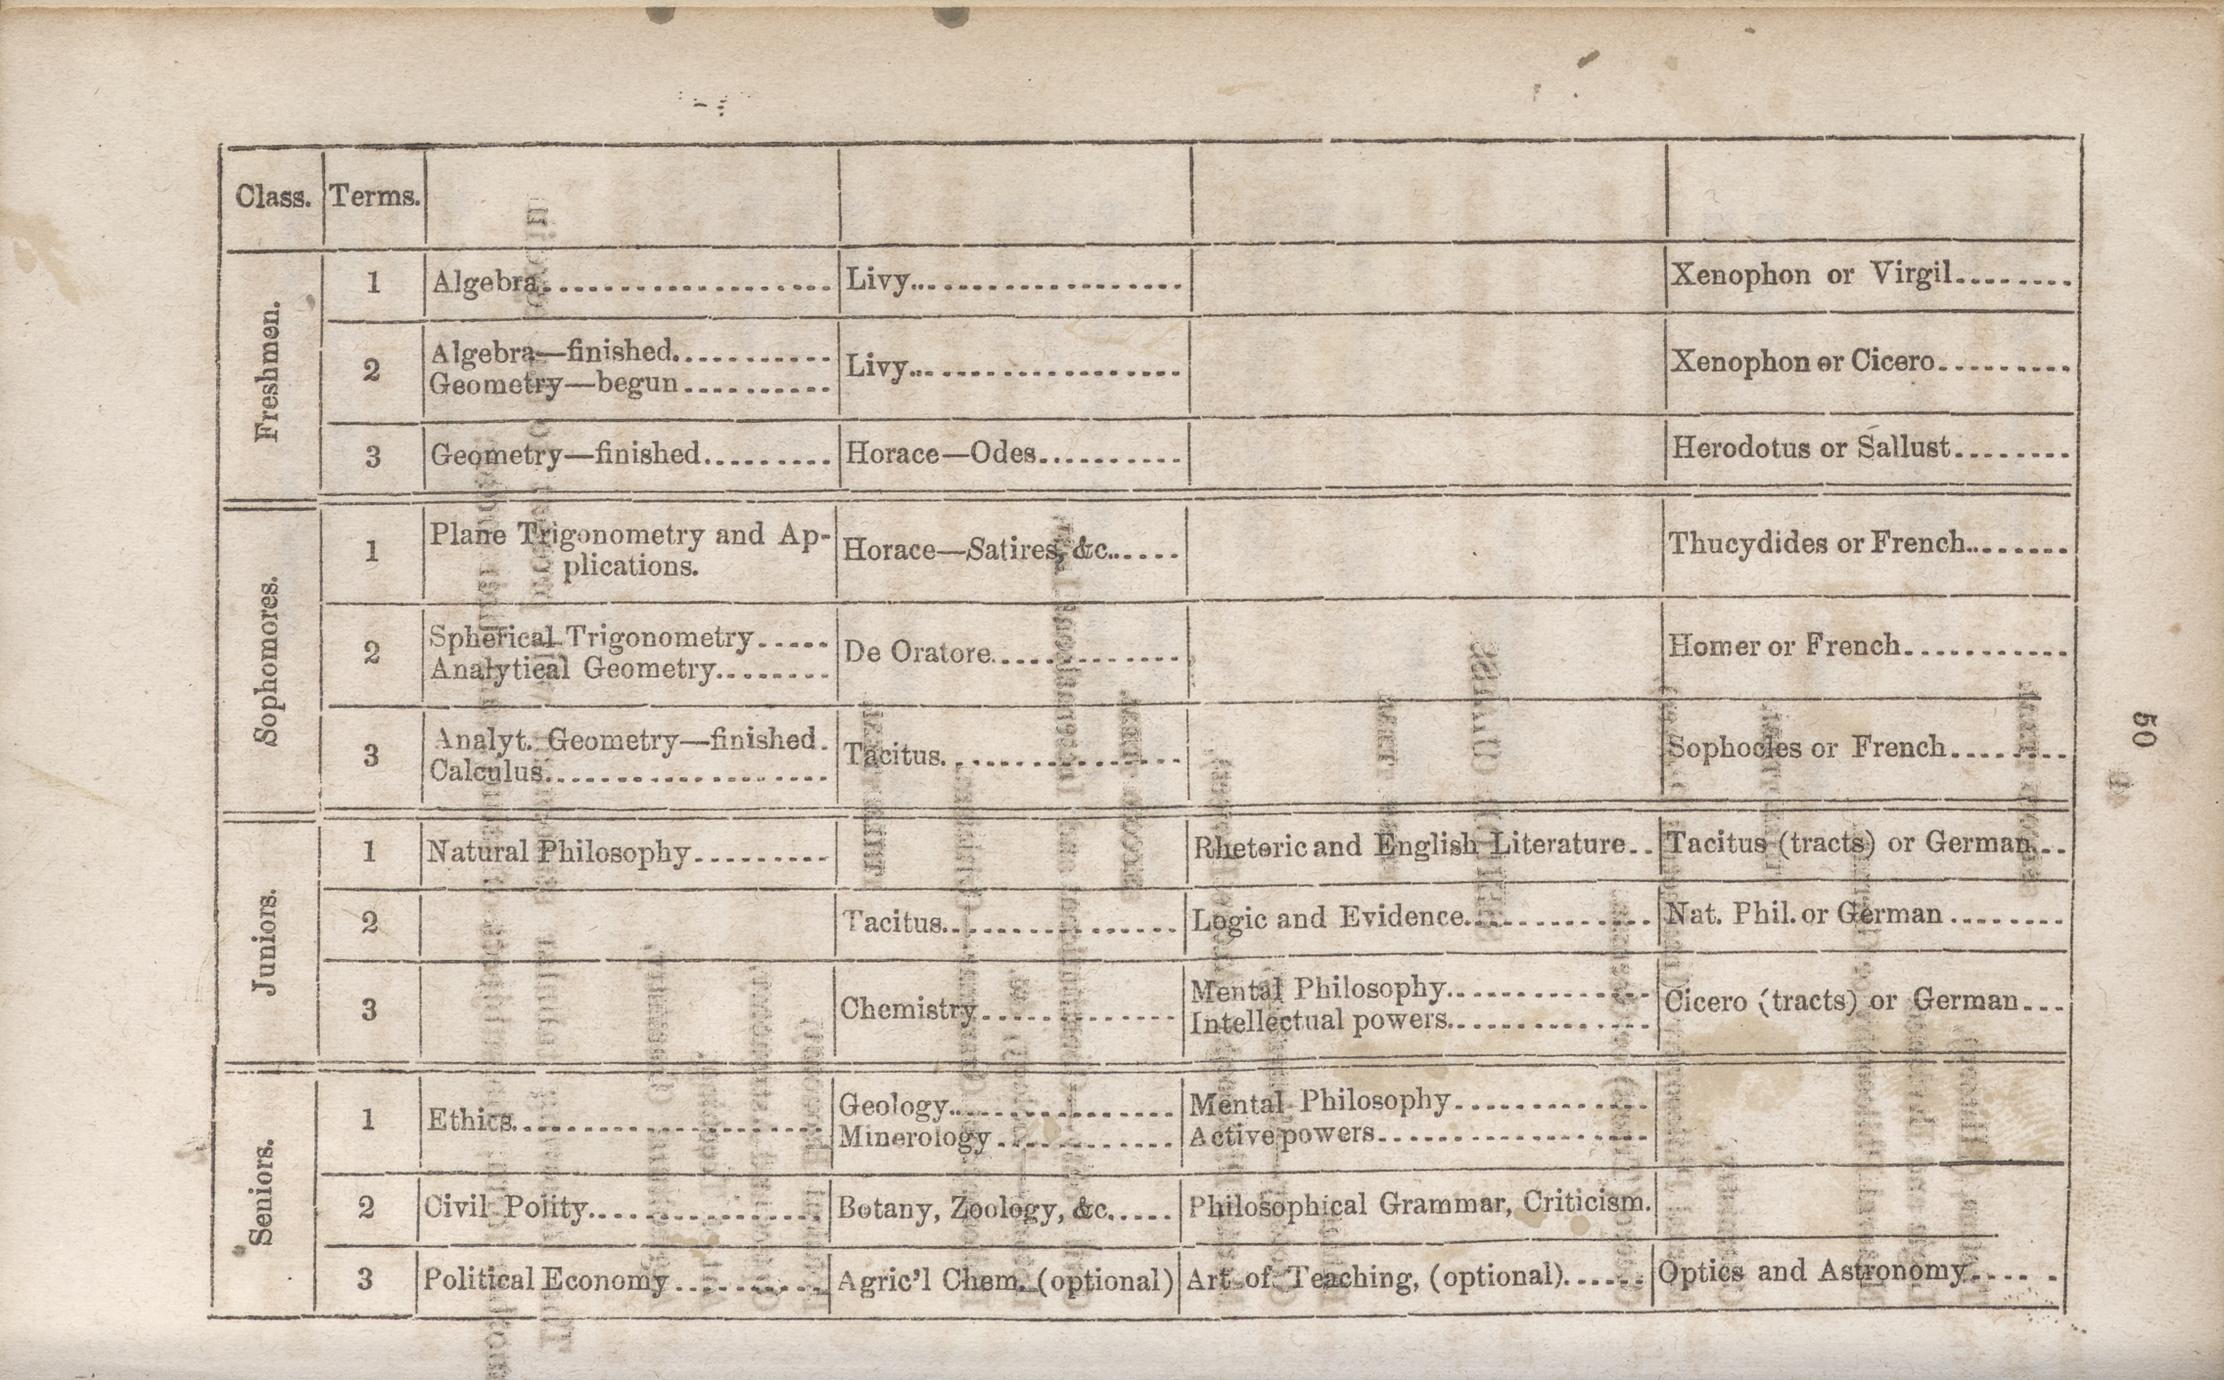 Class. Terms.
Freshmen.
1 Algebra.................... Livy................... Xenophon or Virgil........
2 Algebra—finished........... Livy................... Xenophon or Cicero.........
Geometry—begun..........
3 Geometry—finished......... Horace—Odes.......... Herodotus or Sallust........
Sophomores.
1 Plane Trigonometry and Ap- Horace—Satires, &c...... Thucydides or French........
plications.
2 Spherical Trigonometry..... De Oratore............. Homer or French...........
Analytical Geometry........
3 Analyt. Geometry—finished. Tacitus............... Sophocles or French........
Calculus...................
50
Juniors.
1 Natural Philosophy......... Rhetoric and English Literature.. Tacitus (tracts) or German...
2 Tacitus................ Logic and Evidence............. Nat. Phil. or German........
3 Chemistry............. Mental Philosophy.............. Cicero (tracts) or German...
Intellectual powers..............
Seniors.
1 Ethics.................... Geology................ Mental Philosophy.............
Minerology............ Active powers..................
2 Civil Polity................ Botany, Zoology, &c...... Philosophical Grammar, Criticism.
3 Political Economy.......... Agric'l Chem. (optional) Art of Teaching, (optional)...... Optics and Astronomy......